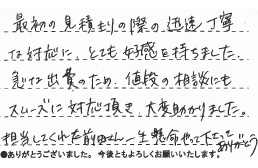 最初の見積もりの際の迅速、丁寧
な対応に、とても好感を持ちました。
急な出費のため、値段の相談にも
スムーズに対応頂き、大変助かりました。
担当してくれた前田さん一生懸命やって下さって
ありがとう
●ありがとうございました。今後ともよろしくお願いいたします。